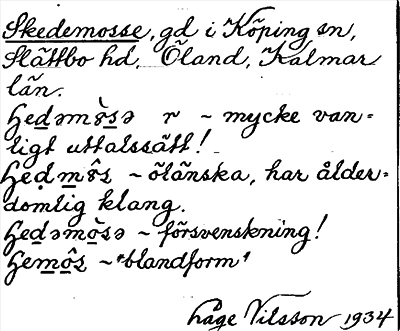 Skedemosse, gd i Köping sn,
Slättbo hd. Öland, Kalmar
län.
Hedəmòsə r ~ mycke van=
ligt uttalssätt!
Hedmôs ~ öländska, har ålder=
domlig klang.
Hedəmòsə ~ försvenskning!
Hemôs ~ "blandform"
Åge Nilsson 1934